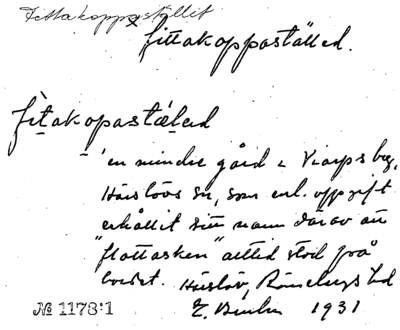 Fettakoppastället
fittakoppastället.
fìtakopastæled
"en mindre gård i Viarps by,
Härslövs sn, som enl. uppgift
erhållit sitt namn därav att
"flottasken" alltid stod på
bordet. Härslöv, Rönnebergs hd
№ 1178:1 1931